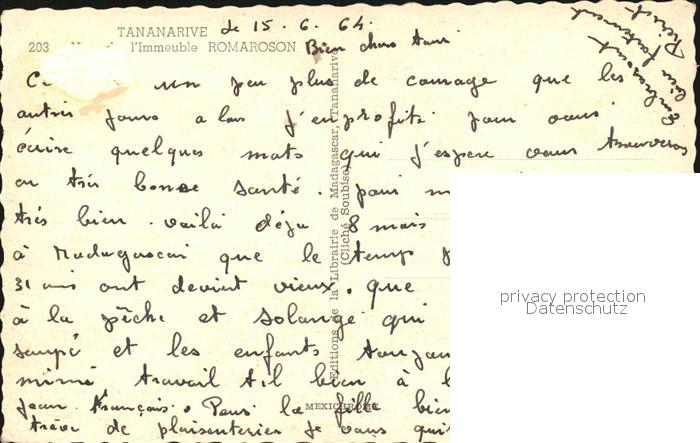 TANANARIVE le 15.6.64.
203 l'Immeuble ROMAROSON Bien chers tous
un peu plus de courage que les
autres jours alors j'en profite pour vous
écrire quelques mots qui j'espere vous trouverons
en trés bonne santé. pour m
trés bien. voila deja 8 mois
à Madagascar que le temp p
31 ans ont devient vieux. que
à la pêche et Solange qui
soupé et les enfants
mimi travail til bien à l
Jean François. Pour la fille bien
trève de plaisenteries je vous qui
Editions de la Librairie de Madagascar, Tananarive
(Cliché Soubise)
MEXICHROME
privacy protection
Datenschutz